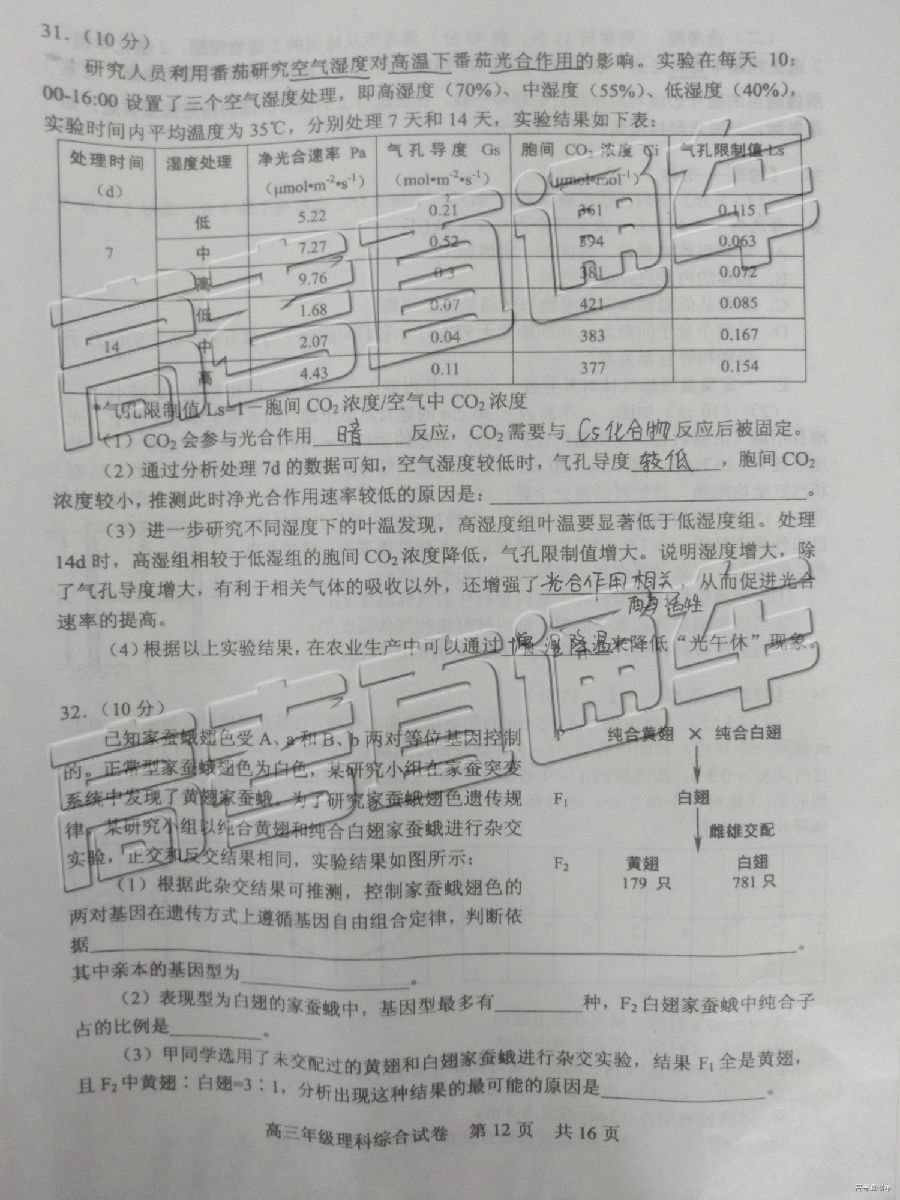 31.（10分）
研究人员利用番茄研究空气湿度对高温下番茄光合作用的影响。实验在每天 10:
00-16:00 设置了三个空气湿度处理，即高湿度（70%）、中湿度（55%）、低湿度（40%），
实验时间内平均温度为 35℃，分别处理 7 天和 14 天，实验结果如下表：
处理时间（d） 湿度处理 净光合速率 Pa（μmol•m⁻²•s⁻¹） 气孔导度 Gs（mol•m⁻²•s⁻¹） 胞间 CO₂ 浓度 Ci（μmol•mol⁻¹） 气孔限制值 Ls
7 低 5.22 0.21 361 0.115
中 7.27 0.52 394 0.063
高 9.76 0.3 381 0.072
14 低 1.68 0.07 421 0.085
中 2.07 0.04 383 0.167
高 4.43 0.11 377 0.154
*气孔限制值 Ls=1－胞间 CO₂ 浓度/空气中 CO₂ 浓度
（1）CO₂ 会参与光合作用 暗 反应，CO₂ 需要与 C₅化合物 反应后被固定。
（2）通过分析处理 7d 的数据可知，空气湿度较低时，气孔导度 较低 ，胞间 CO₂
浓度较小，推测此时净光合作用速率较低的原因是：。
（3）进一步研究不同湿度下的叶温发现，高湿度组叶温要显著低于低湿度组。处理
14d 时，高湿组相较于低湿组的胞间 CO₂ 浓度降低，气孔限制值增大。说明湿度增大，除
了气孔导度增大，有利于相关气体的吸收以外，还增强了 光合作用相关 ，从而促进光合
酶活性
速率的提高。
（4）根据以上实验结果，在农业生产中可以通过 湿降温 来降低“光午休”现象。
32.（10分）
已知家蚕蛾翅色受 A、a 和 B、b 两对等位基因控制
的。正常型家蚕蛾翅色为白色，某研究小组在家蚕突变
系统中发现了黄翅家蚕蛾。为了研究家蚕蛾翅色遗传规
律，某研究小组以纯合黄翅和纯合白翅家蚕蛾进行杂交
实验，正交和反交结果相同，实验结果如图所示：
P 纯合黄翅 × 纯合白翅
F₁ 白翅
雌雄交配
F₂ 黄翅 白翅
179 只 781 只
（1）根据此杂交结果可推测，控制家蚕蛾翅色的
两对基因在遗传方式上遵循基因自由组合定律，判断依
据。
其中亲本的基因型为。
（2）表现型为白翅的家蚕蛾中，基因型最多有种，F₂ 白翅家蚕蛾中纯合子
占的比例是。
（3）甲同学选用了未交配过的黄翅和白翅家蚕蛾进行杂交实验，结果 F₁ 全是黄翅，
且 F₂ 中黄翅：白翅=3：1，分析出现这种结果的最可能的原因是。
高三年级理科综合试卷 第 12 页 共 16 页
高考直通车
高考直通车
高考直通车